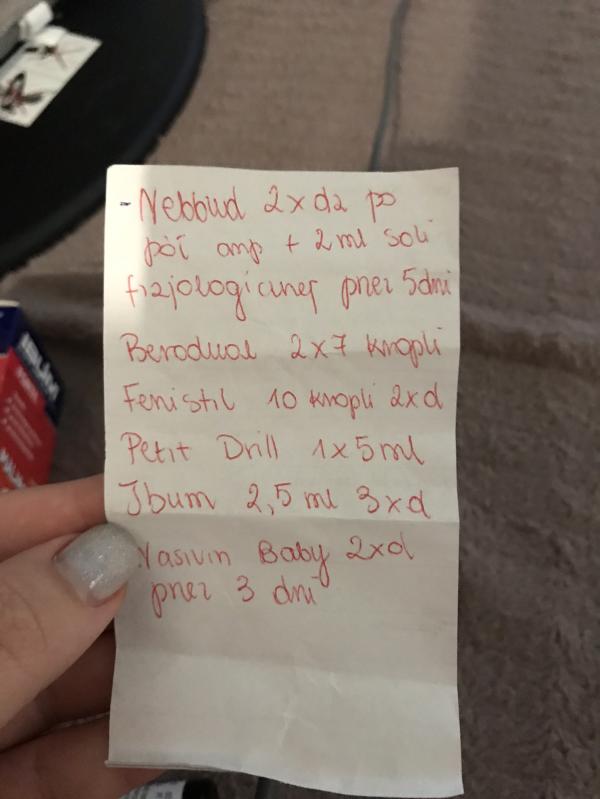 - Nebbud 2xdz po
pół amp + 2ml soli
fizjologicznej przez 5dni
Berodual 2x7 kropli
Fenistil 10 kropli 2xd
Petit Drill 1x5ml
Ibum 2,5 ml 3xd
Nasivin Baby 2xd
przez 3 dni